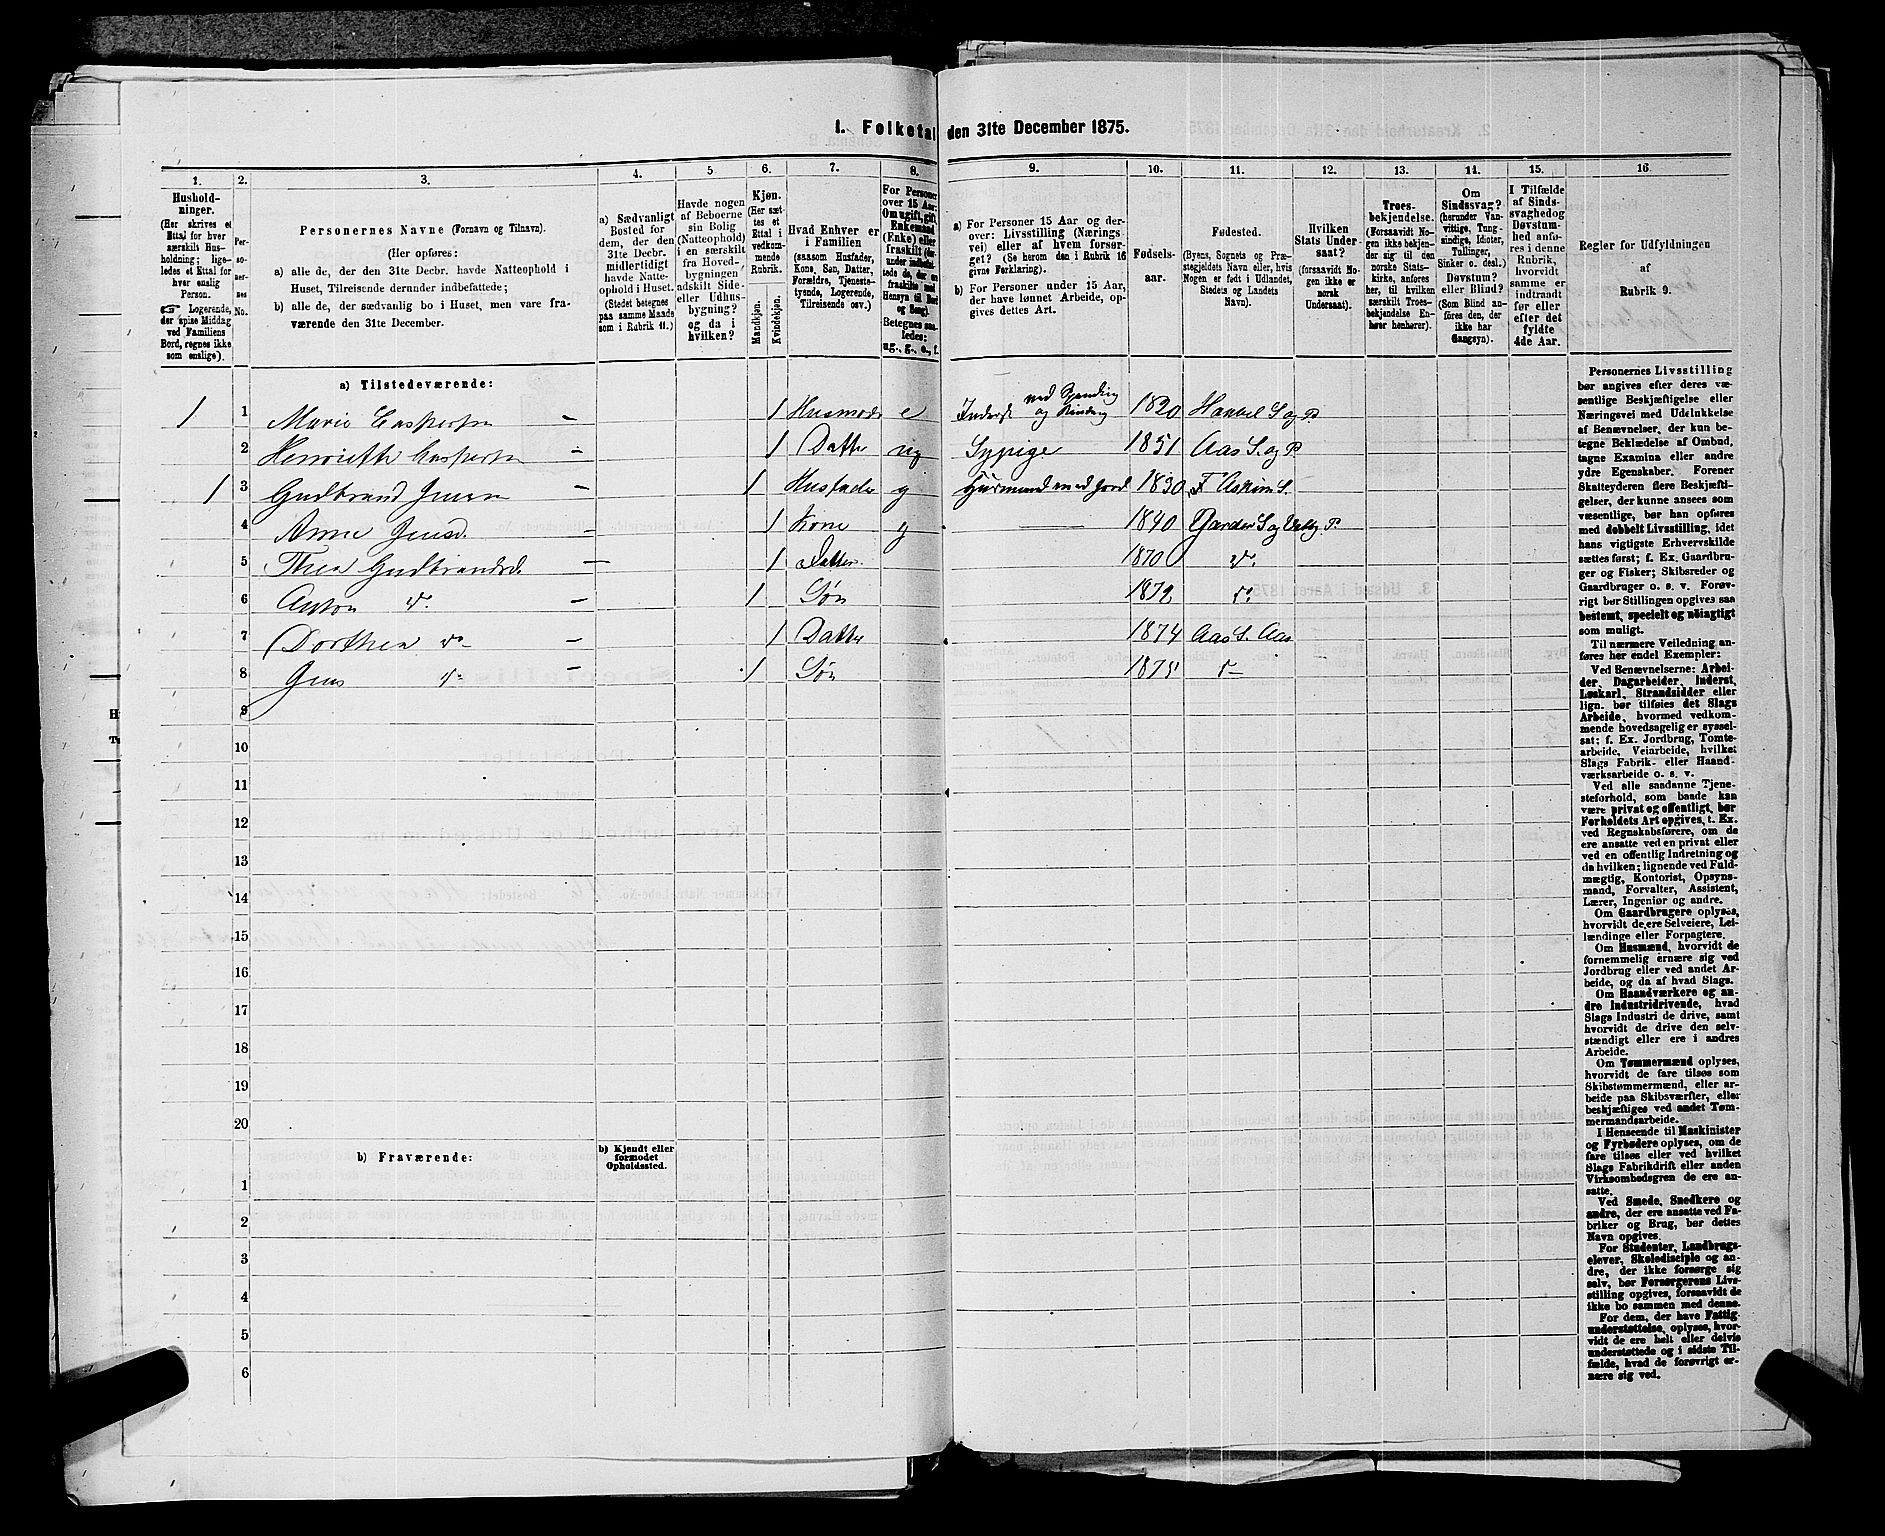 1. Folketal den 31te December 1875.
1.
Hushold-
ninger.
(Her skrives et
Ettal for hver
særskilt Hus-
holdning; lige-
ledes et Ettal for
hver enslig
Person.
☞ Logerende,
der spise Middag
ved Familiens
Bord, regnes ikke
som enslige).
2.
Per-
so-
ner-
nes
No.
3.
Personernes Navne (Fornavn og Tilnavn).
(Her opføres:
a) alle de, der den 31te Decbr. havde Natteophold i
Huset, Tilreisende derunder indbefattede;
b) alle de, der sædvanlig bo i Huset, men vare fra-
værende den 31te December.
4.
a) Sædvanligt
Bosted for
dem, der den
31te Decbr.
midlertidigt
havde Natte-
ophold i Huset.
(Stedet betegnes
paa samme Maade
som i Rubrik 11.)
5
Havde nogen
af Beboerne
sin Bolig
(Natteophold)
i en særskilt
fra Hoved-
bygningen
adskilt Side-
eller Udhus-
bygning?
og da i
hvilken?
6.
Kjøn.
(Her sæt-
tes et
Ettal i
vedkom-
mende
Rubrik.
Mandkjøn.
Kvindekjøn.
7.
Hvad Enhver er
i Familien
(saasom Husfader,
Kone, Søn, Datter,
Forældre, Tjeneste-
tyende, Logerende,
Tilreisende osv.)
8.
For Personer
over 15 Aar:
Om ugift, gift,
Enkemand
(Enke) eller
fraskilt
Betegnes saa-
ledes:
ug., g., e., f.
9.
a) For Personer 15 Aar og der-
over: Livsstilling (Nærings-
vei) eller af hvem forsør-
get? (Se herom den i Rubrik 16
givne Forklaring).
b) For Personer under 15 Aar,
der have lønnet Arbeide, op-
gives dettes Art.
10.
Fødsels-
aar.
11.
Fødested.
(Byens, Sognets og Præ-
stegjeldets Navn eller, hvis
Nogen er født i Udlandet,
Stedets og Landets
Navn).
12.
Hvilken
Stats Under-
saat?
(forsaavidt No-
gen ikke er
norsk
Undersaat).
13.
Troes-
bekjendelse.
(Forsaavidt No-
gen ikke bekjen-
der sig til den
norske Stats-
kirke, anføres,
til hvilken
særskilt Troes-
bekjendelse En-
hver henhører).
14.
Om
Sindssvag?
(herunder Van-
vittige, Tung-
sindige, Idioter,
Tullinger,
Sinker o. desl.)
Døvstum?
eller Blind?
(Som Blind an-
føres den, der
ikke har
Gangsyn).
15.
I Tilfælde
af Sinds-
svaghed og
Døvstum-
hed anfø-
res i denne
Rubrik,
hvorvidt
samme er
indtraadt
før eller
efter det
fyldte
4de Aar.
16
Regler for Udfyldningen
af
Rubrik 9.
a) Tilstedeværende:
1 1 Marie Caspersen – 1 Husmoder e Inderst med Spinding og Binding 1820 S og P.
2 Henriette Caspersen 1 Datter ug Sypige 1851 Aas S. og P.
1 3 Gudbrand Jensen – 1 Husfader g Husmand med Jord 1830 Askim S.
4 Anne Jensd. – 1 Kone g — 1840 Garder S og Vestby P.
5 Thea Gudbrandsd. — 1 Datter 1870 do
6 Anton do – 1 Søn 1872 do
7 Dorthea do – 1 Datter 1874 Aas S. Aas
8 Jens do – 1 Søn 1875 do
9
10
11
12
13
14
15
16
17
18
19
20
b) Fraværende:
b) Kjendt eller
formodet
Opholdssted.
1
2
3
4
5
6
Personernes Livsstilling
bør angives efter deres væ-
sentlige Beskjæftigelse eller
Næringsvei med Udelukkelse
af Benævnelser, der kun be-
tegne Beklædelse af Ombud,
tagne Examina eller andre
ydre Egenskaber. Forener
Skatteyderen flere Beskjæfti-
gelser, der kunne ansees som
væsentlige, bør han opføres
med dobbelt Livsstilling, idet
hans vigtigste Erhvervskilde
sættes først; f. Ex. Gaardbru-
ger og Fisker; Skibsreder og
Gaardbruger o. s. v. Forøv-
rigt bør Stillingen opgives saa
bestemt, specielt og nøiagtigt
som muligt.
Til nærmere Veiledning an-
føres her endel Exempler:
Ved Benævnelserne: Arbei-
der, Dagarbeider, Inderst,
Løskarl, Strandsidder eller
lign. bør tilføies det Slags
Arbeide, hvormed vedkom-
mende hovedsagelig er syssel-
sat; f. Ex. Jordbrug, Tomte-
arbeide, Veiarbeide, hvilket
Slags Fabrik- eller Haand-
værksarbeide o. s. v.
Ved alle saadanne Tjene-
steforhold, som baade kan
være privat og offentligt, bør
Forholdets Art opgives, t. Ex.
ved Regnskabsførere, om de
ere ansatte ved en privat eller
ved en offentlig Indretning og
da hvilken; lignende ved Fuld-
mægtig, Kontorist, Opsyns-
mand, Forvalter, Assistent,
Lærer, Ingeniør og andre.
Om Gaardbrugere oplyses,
hvorvidt de ere Selveiere, Lei-
lændinge eller Forpagtere.
Om Husmænd, hvorvidt de
fornemmelig ernære sig ved
Jordbrug eller ved andet Ar-
beide, og da af hvad Slags.
Om Haandværkere og an-
dre Industridrivende, hvad
Slags Industri de drive, samt
hvorvidt de drive den selv-
stændigt eller ere i andres
Arbeide.
Om Tømmermænd oplyses,
hvorvidt de fare tilsøs som
Skibstømmermænd, eller ar-
beide paa Skibsværfter, eller
beskjæftiges ved andet Tøm-
mermandsarbeide.
I Henseende til Maskinister
og Fyrbødere oplyses, om de
fare tilsøs eller ved hvilket
Slags Fabrikdrift eller anden
Virksomhedsgren de ere an-
satte.
Ved Smede, Snedkere og
andre, der ere ansatte ved Fa-
briker og Brug, bør dettes
Navn opgives.
For Studenter, Landbrugs-
elever, Skoledisciple og an-
dre, der ikke forsørge sig
selv, bør Forsørgerens Livs-
stilling opgives, forsaavidt de
ikke bo sammen med denne.
For dem, der have Fattig-
understøttelse, oplyses, hvor-
vidt de ere helt eller delvis
understøttede og i sidste Til-
fælde, hvad de forøvrigt er-
nære sig ved.